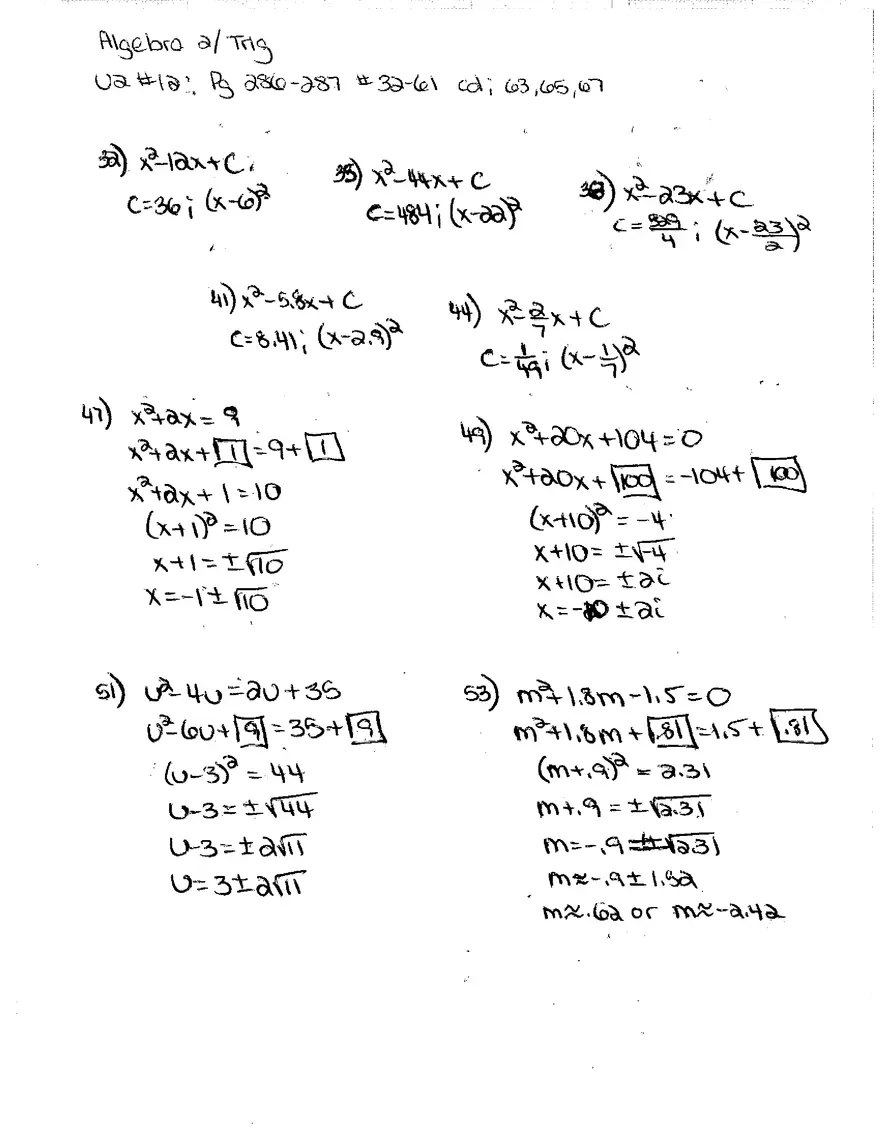 Algebra 2/Trig
U2 #12: Pg 286-287 #32-61 cd; 63,65,67
32) x²-12x+C
C=36; (x-6)²
35) x²-44x+C
C=484; (x-22)²
38) x²-23x+C
C=529/4; (x-23/2)²
41) x²-5.8x+C
C=8.41; (x-2.9)²
44) x²-2/7x+C
C=1/49; (x-1/7)²
47) x²+2x=9
x²+2x+[1]=9+[1]
x²+2x+1=10
(x+1)²=10
x+1=±√10
x=-1±√10
49) x²+20x+104=0
x²+20x+[100]=-104+[100]
(x+10)²=-4
x+10=±√-4
x+10=±2i
x=-10±2i
51) u²-4u=2u+35
u²-6u+[9]=35+[9]
(u-3)²=44
u-3=±√44
u-3=±2√11
u=3±2√11
53) m²+1.8m-1.5=0
m²+1.8m+[.81]=1.5+[.81]
(m+.9)²=2.31
m+.9=±√2.31
m=-.9±√2.31
m≈-.9±1.52
m≈.62 or m≈-2.42